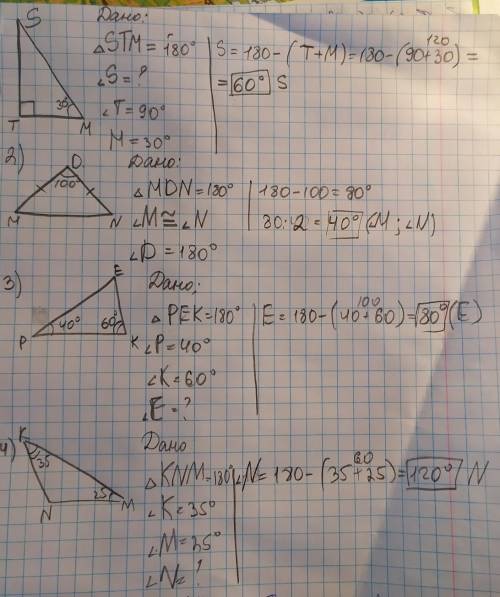 S
30°
T
M
Дано:
△STM = 180°
∠S = ?
∠T = 90°
M = 30°
120
S = 180 - (T+M) = 180 - (90+30) =
= 60° S
2)
D
100°
M
N
Дано:
△MDN = 180°
∠M ≅ ∠N
∠D = 180°
180 - 100 = 80°
80:2 = 40° (∠M; ∠N)
3)
E
40°
60°
P
K
Дано:
△PEK = 180°
∠P = 40°
∠K = 60°
∠E = ?
100
E = 180 - (40+60) = 80° (E)
4)
K
35
25
N
M
Дано
△KNM = 180°
∠K = 35°
∠M = 25°
∠N = ?
60
∠N = 180 - (35+25) = 120° N